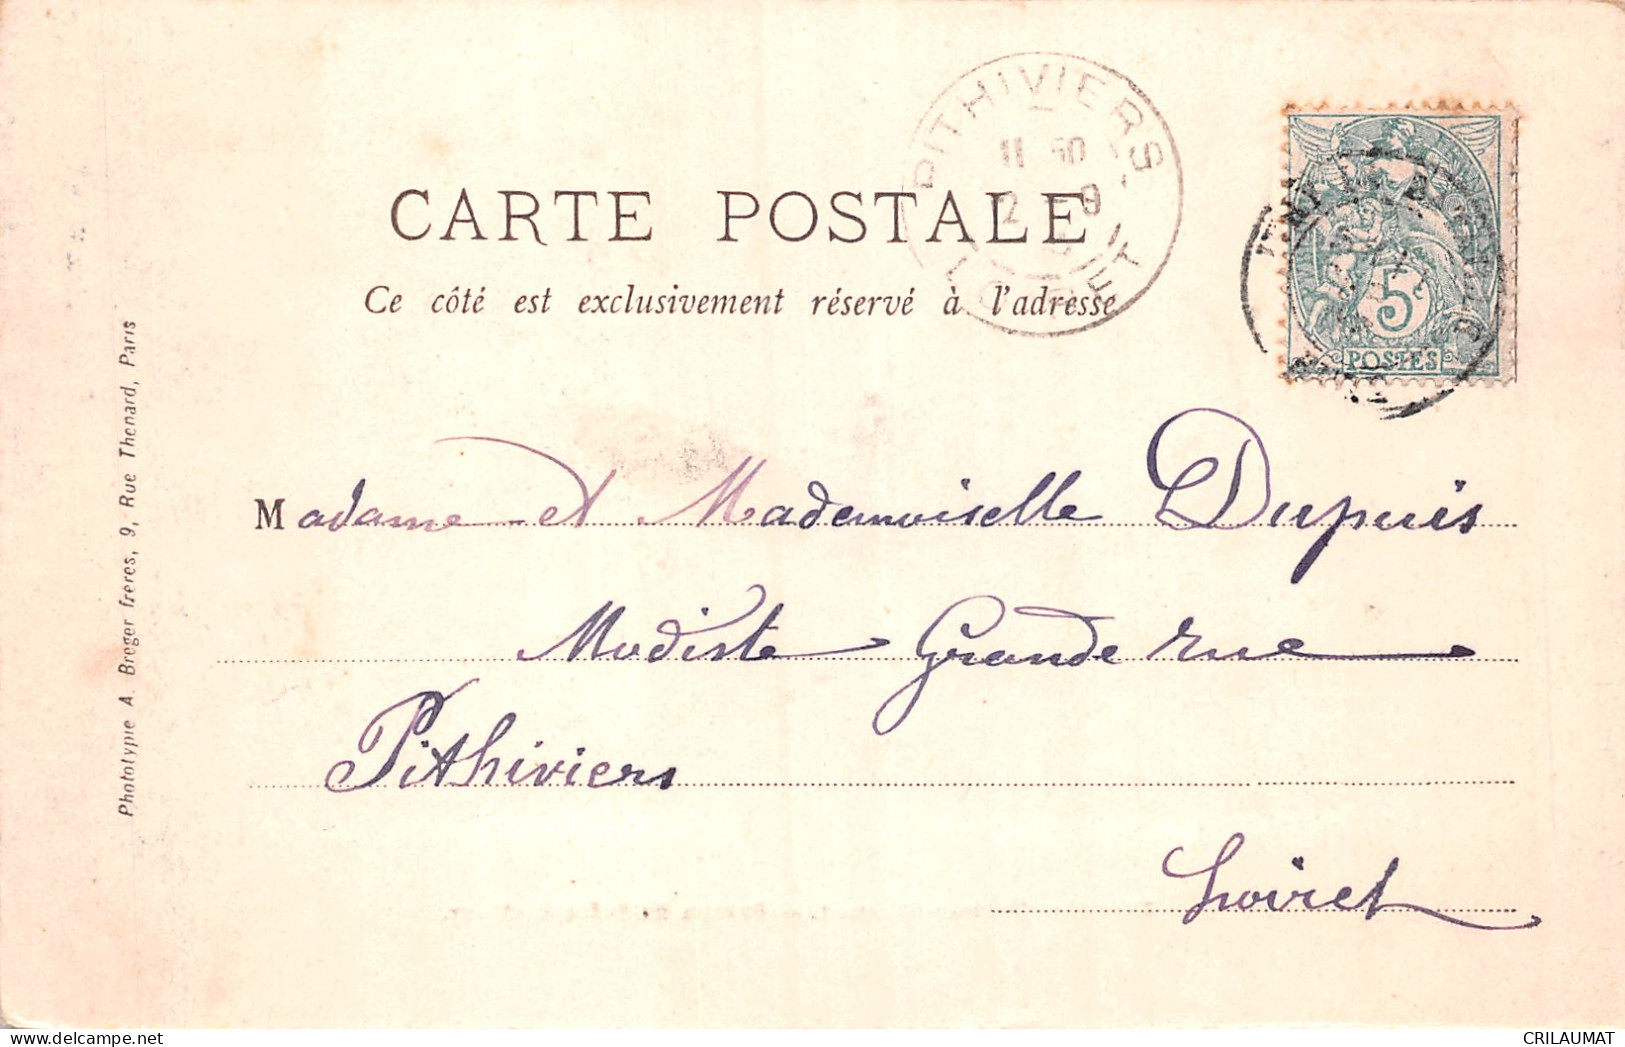 PITHIVIERS
11 50
2 9
LOIRET
CARTE POSTALE
Ce côté est exclusivement réservé à l'adresse
5c
POSTES
Madame et Mademoiselle Dupuis
Modiste Grande rue
Pithiviers
Loiret
Phototypie A. Breger frères, 9, Rue Thenard, Paris
CRILAUMAT